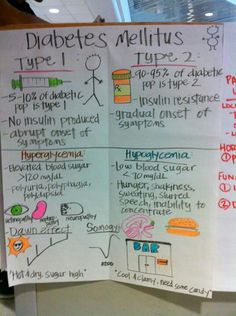 Diabetes Mellitus
Type 1:
- 5-10% of diabetic
pop is type 1
- No insulin produced
- abrupt onset of
symptoms
Type 2:
- 90-95% of diabetic
pop is type 2
- Insulin resistance
- gradual onset of
symptoms
Hyperglycemia
- Elevated blood sugar
>120 mg/dL
- polyuria, polyphagia,
polydipsia
retinopathy
neuropathy
Dawn effect
Somogyi
"Hot & dry, sugar high"
Hypoglycemia
- Low blood sugar
< 70 mg/dL
- Hunger, shakiness,
sweating, slurred
speech, inability to
concentrate
BAR
"Cool & clammy, need some candy"